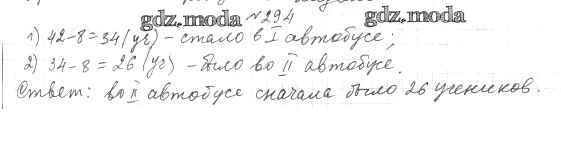 gdz.moda №294 gdz.moda
1) 42-8=34 (уч) - стало в I автобусе;
2) 34-8=26 (уч) - было во II автобусе.
Ответ: во II автобусе сначала было 26 учеников.